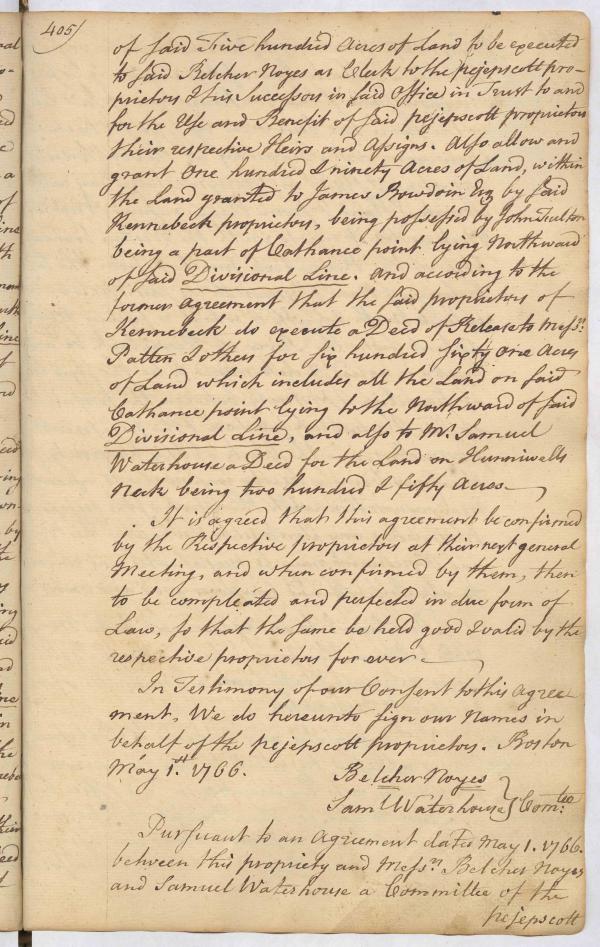 405/
of said Five hundred Acres of Land to be executed
to said Belcher Noyes as Clerk to the pejepscott pro-
prietors & his Successors in said Office in Trust to and
for the Use and Benefit of said pejepscott proprietors
their respective Heirs and Assigns. Also allow and
grant One hundred & ninety Acres of Land, within
the Land granted to James Bowdoin Esq by said
Kennebeck proprietors, being possessed by John Fulton
being a part of Cathance point lying Northward
of said Divisional Line. And according to the
former agreement that the said proprietors of
Kennebeck do execute a Deed of Release to Mess.rs
Patten & others for six hundred sixty one Acres
of Land which includes all the Land on said
Cathance point lying to the Northward of said
Divisional Line, and also to Mr. Samuel
Waterhouse a Deed for the Land on Hunniwells
Neck being two hundred & fifty Acres
It is agreed that this agreement be confirmed
by the Respective proprietors at their next general
Meeting, and when confirmed by them, then
to be compleated and perfected in due form of
Law, so that the same be held good & valid by the
respective proprietors for ever
In Testimony of our Consent to this Agree
ment, We do hereunto sign our Names in
behalf of the pejepscott proprietors. Boston
May 1.st 1766.
Belcher Noyes
Saml Waterhouse } Com:tee
Pursuant to an Agreement dated May 1. 1766.
between this propriety and Mess.rs Belcher Noyes
and Samuel Waterhouse a Committee of the
pejepscott